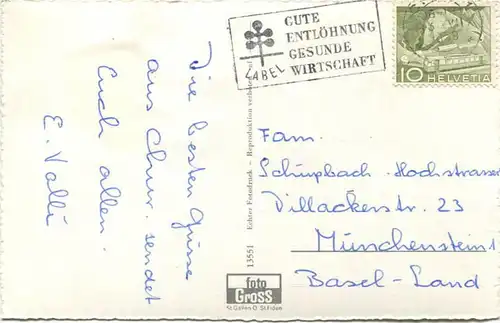 Die besten Grüsse
aus Chur. sendet
Euch allen.
E. Valli
GUTE
ENTLÖHNUNG
GESUNDE
WIRTSCHAFT
LABEL
10 HELVETIA
13551 Echter Fotodruck - Reproduktion verboten
foto
GROSS
St.Gallen O. St.Fiden
Fam.
Schüpbach-Hochstrasser
Villackerstr. 23
Münchenstein 1
Basel-Land